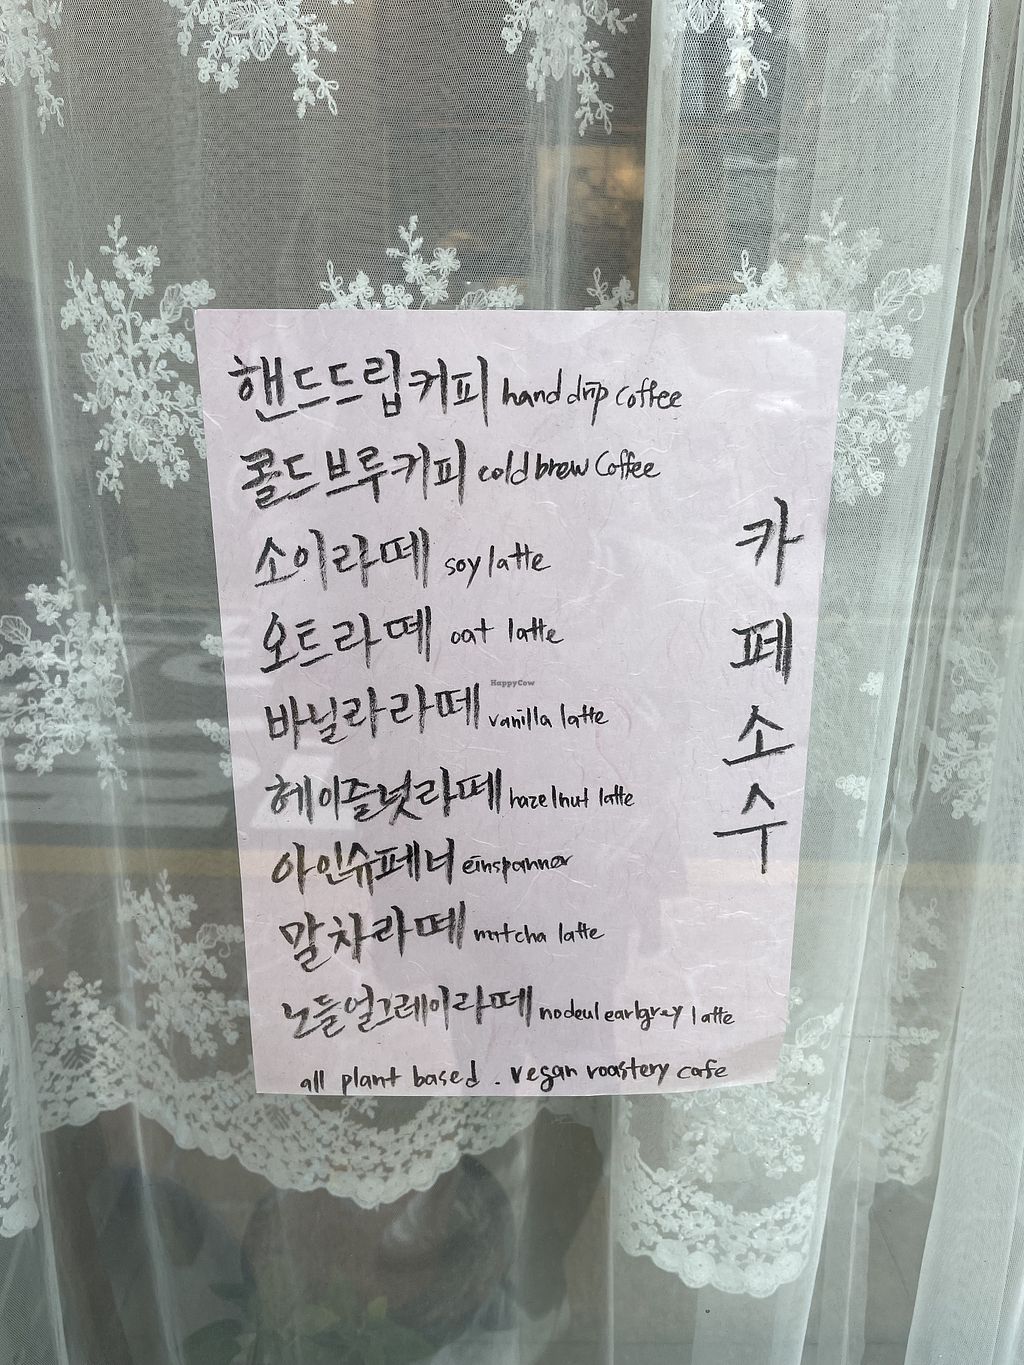 핸드드립커피 hand drip coffee
콜드브루커피 cold brew coffee
소이라떼 soy latte
오트라떼 oat latte
바닐라라떼 vanilla latte
헤이즐넛라떼 hazelnut latte
아인슈페너 einspanner
말차라떼 matcha latte
노들얼그레이라떼 nodeul earlgrey latte
all plant based . vegan roastery cafe
카페소수
HappyCow